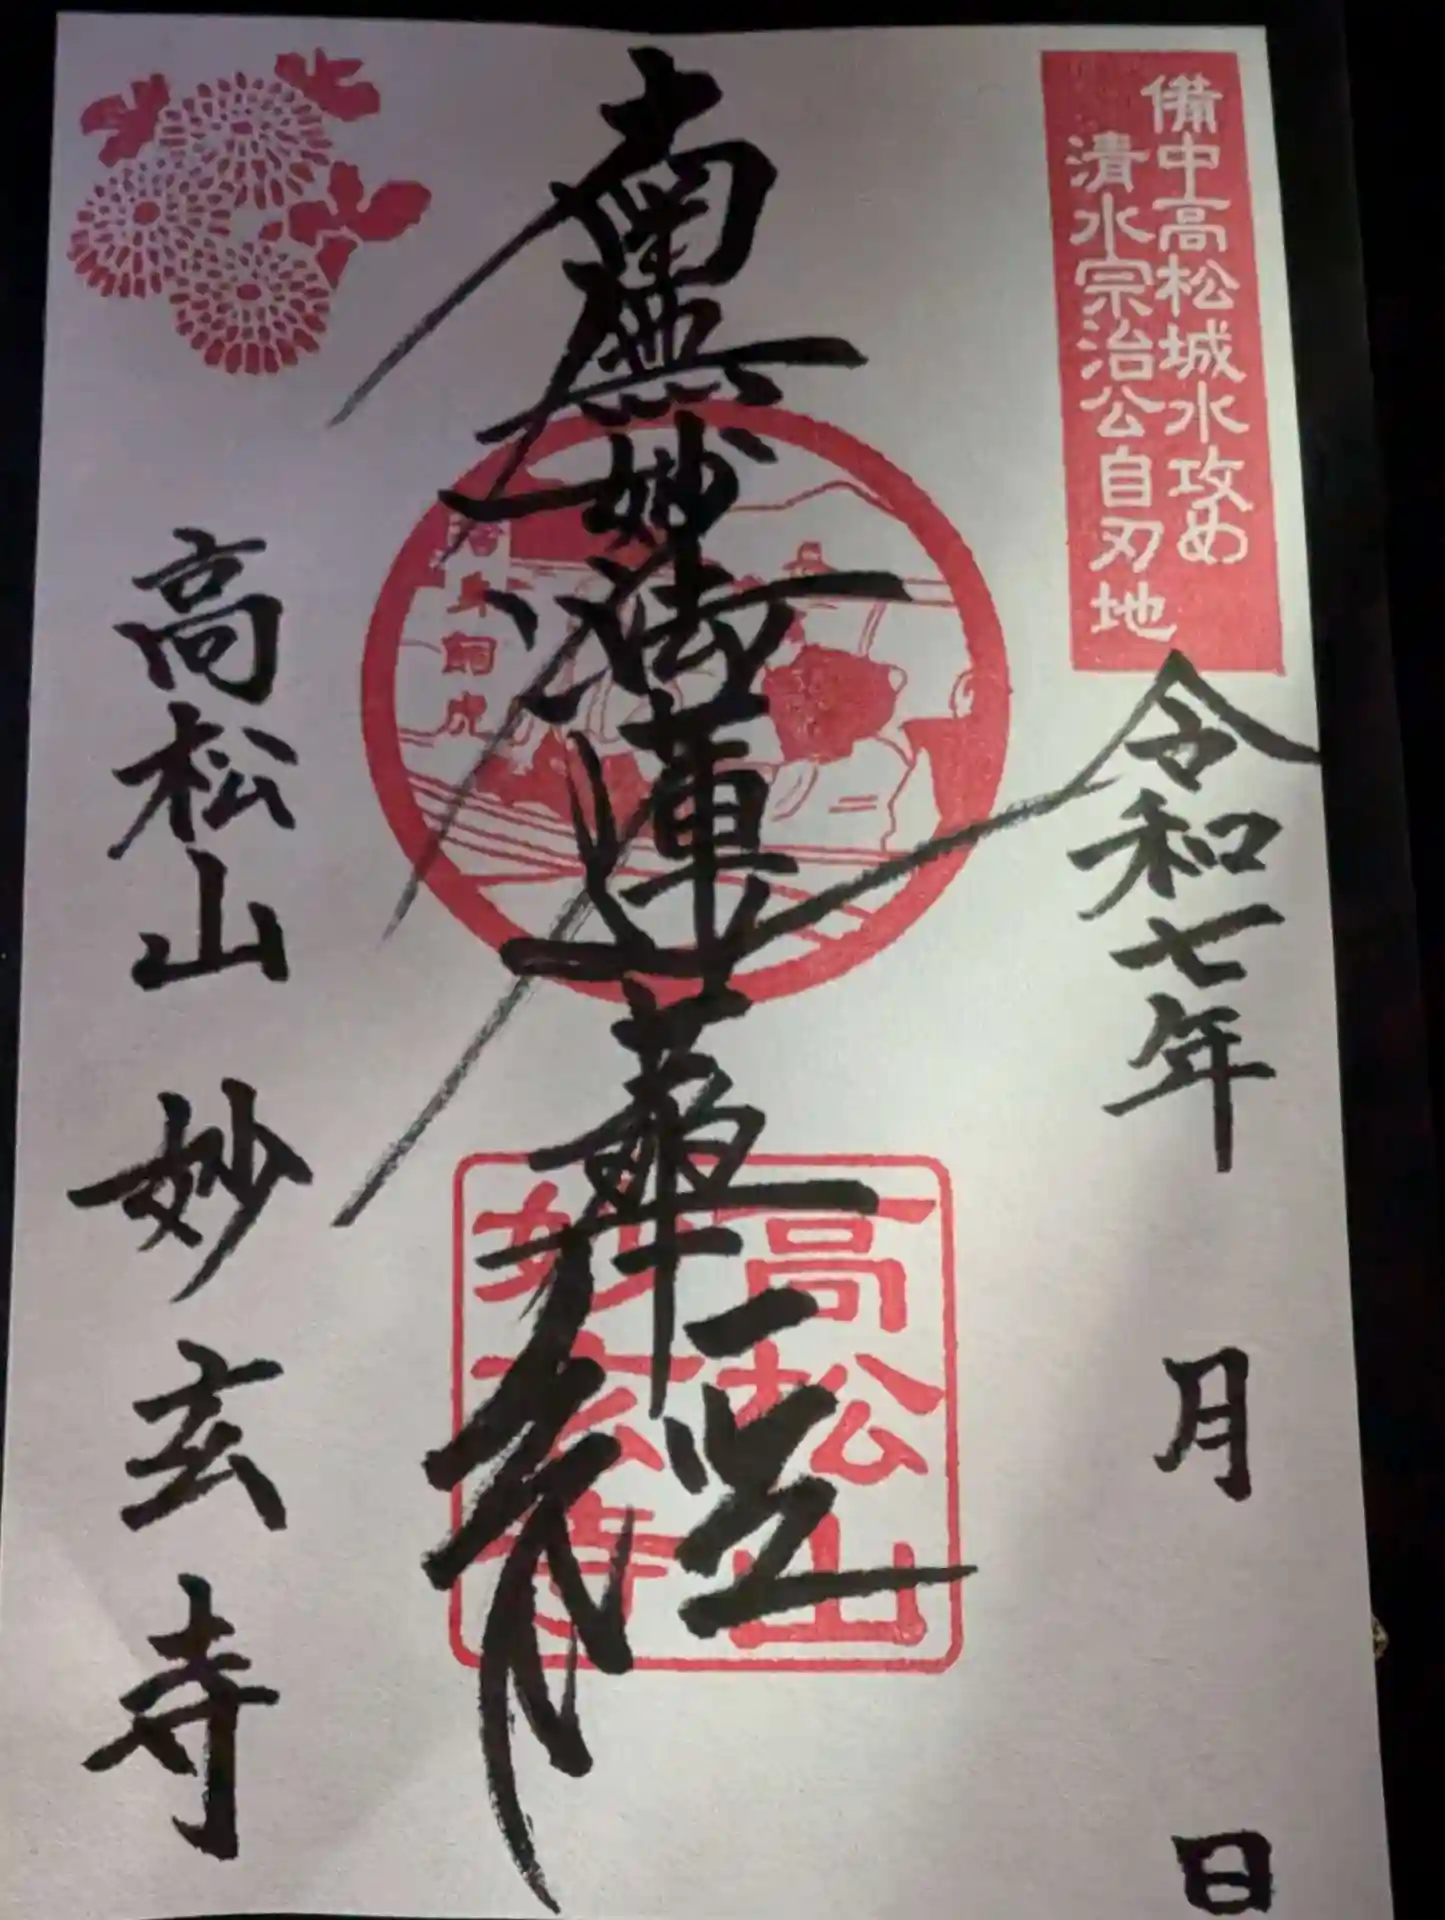 備中高松城水攻め
清水宗治公自刃地
令和七年 月 日
南無妙法蓮華經
捨身飼虎
高松山
妙玄寺
高松山 妙玄寺